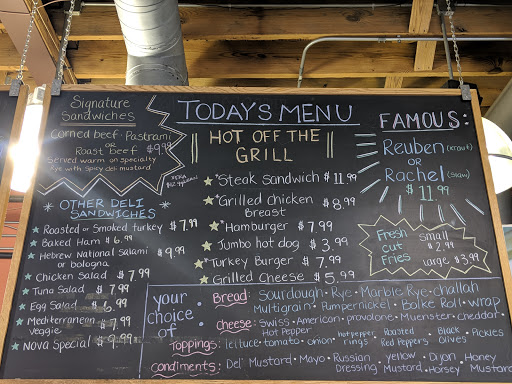 TODAY'S MENU
Signature
Sandwiches
Corned beef · Pastrami
or
Roast beef $9.99
Served warm on specialty
rye with spicy deli mustard
OTHER DELI
SANDWICHES
Roasted or Smoked turkey $7.99
Baked Ham $6.99
Hebrew National Salami $9.99
or bologna
Chicken Salad $7.99
Tuna Salad $7.99
Egg Salad $6.99
Mediterranean $7.99
veggie
NOVA Special $9.99
HOT OFF THE
GRILL
Steak Sandwich $11.99
Grilled Chicken $8.99
Breast
Hamburger $7.99
Jumbo hot dog $3.99
Turkey Burger $7.99
Grilled Cheese $5.99
FAMOUS:
Reuben (Kraut)
OR
Rachel (Slaw)
$11.99
Fresh
cut
Fries
small
$2.99
large $3.99
your
choice
of
Bread: Sourdough · Rye · Marble Rye · challah
Multigrain · Pumpernickel · Bolke Roll · wrap
cheese: Swiss · American · provolone · Muenster · cheddar
Toppings: lettuce · tomato · onion · hot pepper rings · Roasted Red Peppers · Black Olives · Pickles
Condiments: Deli Mustard · Mayo · Russian Dressing · yellow Mustard · Dijon · Honey Mustard